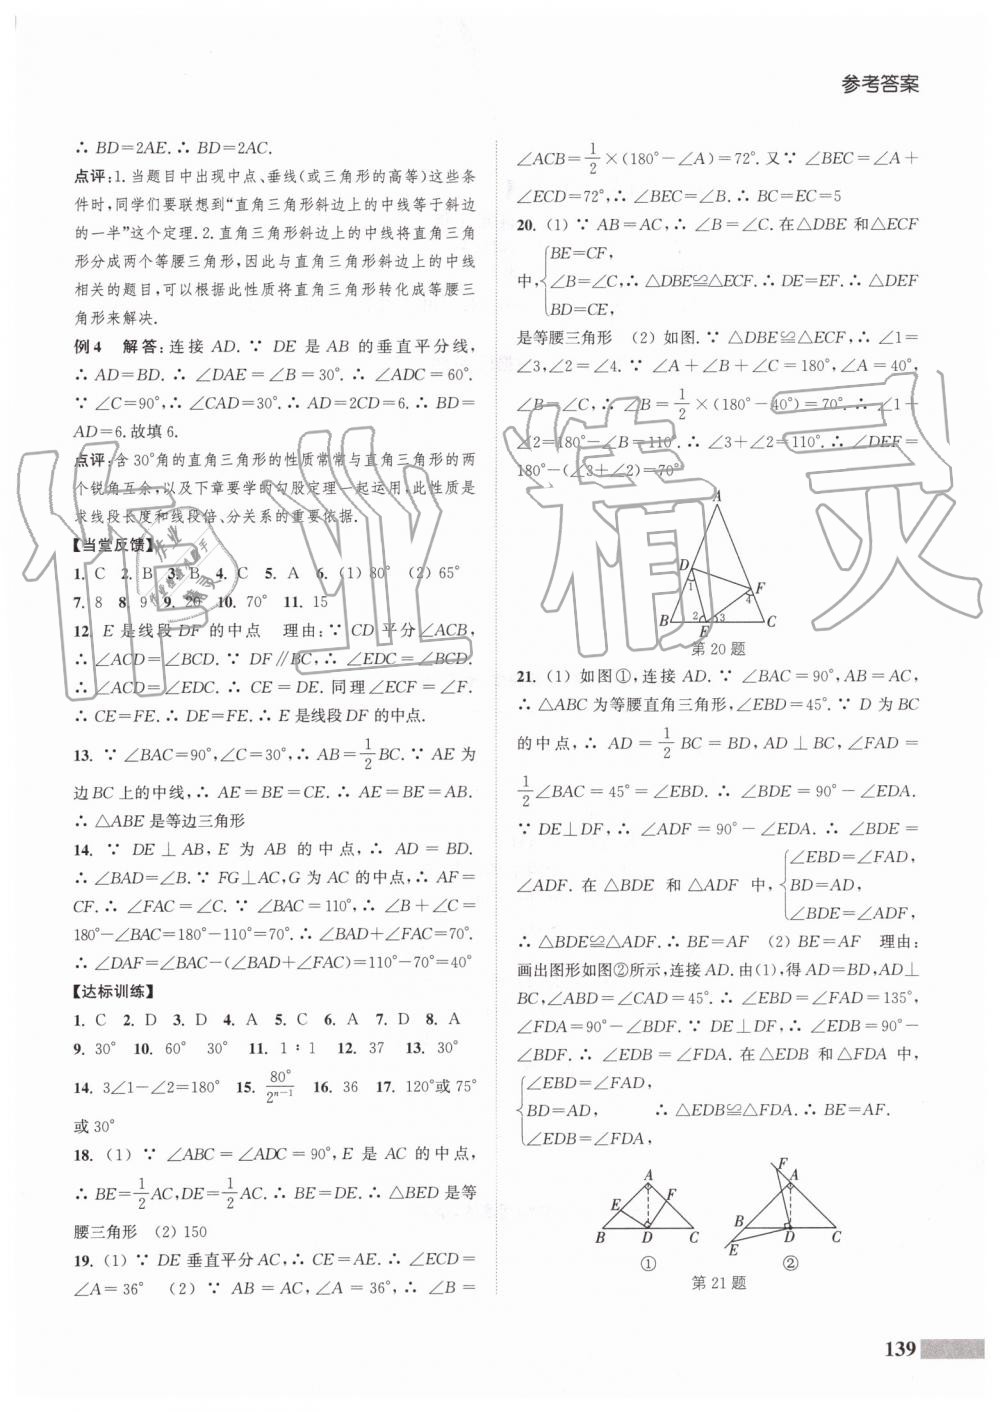 参考答案
∴ BD=2AE. ∴ BD=2AC.
点评:1.当题目中出现中点、垂线(或三角形的高等)这些条
件时,同学们要联想到“直角三角形斜边上的中线等于斜边
的一半”这个定理.2.直角三角形斜边上的中线将直角三角
形分成两个等腰三角形,因此与直角三角形斜边上的中线
相关的题目,可以根据此性质将直角三角形转化成等腰三
角形来解决.
例4 解答:连接 AD. ∵ DE 是 AB 的垂直平分线,
∴ AD=BD. ∴ ∠DAE=∠B=30°. ∴ ∠ADC=60°.
∵ ∠C=90°,∴ ∠CAD=30°. ∴ AD=2CD=6. ∴ BD=
AD=6.故填6.
点评:含30°角的直角三角形的性质常常与直角三角形的两
个锐角互余,以及下章要学的勾股定理一起运用,此性质是
求线段长度和线段倍、分关系的重要依据.
【当堂反馈】
1. C 2. B 3. B 4. C 5. A 6. (1) 80° (2) 65°
7. 8 8. 9 9. 20 10. 70° 11. 15
12. E 是线段 DF 的中点 理由:∵ CD 平分∠ACB,
∴ ∠ACD=∠BCD. ∵ DF∥BC,∴ ∠EDC=∠BCD.
∴ ∠ACD=∠EDC. ∴ CE=DE. 同理∠ECF=∠F.
∴ CE=FE. ∴ DE=FE. ∴ E 是线段 DF 的中点.
13. ∵ ∠BAC=90°,∠C=30°,∴ AB=1/2BC. ∵ AE 为
边 BC 上的中线,∴ AE=BE=CE. ∴ AE=BE=AB.
∴ △ABE 是等边三角形
14. ∵ DE⊥AB,E 为 AB 的中点,∴ AD=BD.
∴ ∠BAD=∠B. ∵ FG⊥AC,G 为 AC 的中点,∴ AF=
CF. ∴ ∠FAC=∠C. ∵ ∠BAC=110°,∴ ∠B+∠C=
180°-∠BAC=180°-110°=70°. ∴ ∠BAD+∠FAC=70°.
∴ ∠DAF=∠BAC-(∠BAD+∠FAC)=110°-70°=40°
【达标训练】
1. C 2. D 3. D 4. A 5. C 6. A 7. D 8. A
9. 30° 10. 60° 30° 11. 1∶1 12. 37 13. 30°
14. 3∠1-∠2=180° 15. 80°/2ⁿ⁻¹ 16. 36 17. 120°或75°
或30°
18. (1) ∵ ∠ABC=∠ADC=90°,E 是 AC 的中点,
∴ BE=1/2AC,DE=1/2AC. ∴ BE=DE. ∴ △BED 是等
腰三角形 (2) 150
19. (1) ∵ DE 垂直平分 AC,∴ CE=AE. ∴ ∠ECD=
∠A=36° (2) ∵ AB=AC,∠A=36°,∴ ∠B=
∠ACB=1/2×(180°-∠A)=72°. 又∵ ∠BEC=∠A+
∠ECD=72°,∴ ∠BEC=∠B. ∴ BC=EC=5
20. (1) ∵ AB=AC,∴ ∠B=∠C. 在△DBE 和△ECF
BE=CF,
中,∠B=∠C,∴ △DBE≌△ECF. ∴ DE=EF. ∴ △DEF
BD=CE,
是等腰三角形 (2) 如图. ∵ △DBE≌△ECF,∴ ∠1=
∠3,∠2=∠4. ∵ ∠A+∠B+∠C=180°,∠A=40°,
∠B=∠C,∴ ∠B=1/2×(180°-40°)=70°. ∴ ∠1+
∠2=180°-∠B=110°. ∴ ∠3+∠2=110°. ∴ ∠DEF=
180°-(∠3+∠2)=70°
A
D
F
1
4
B
2
3
E
C
第20题
21. (1) 如图①,连接 AD. ∵ ∠BAC=90°,AB=AC,
∴ △ABC 为等腰直角三角形,∠EBD=45°. ∵ D 为 BC
的中点,∴ AD=1/2BC=BD,AD⊥BC,∠FAD=
1/2∠BAC=45°=∠EBD. ∴ ∠BDE=90°-∠EDA.
∵ DE⊥DF,∴ ∠ADF=90°-∠EDA. ∴ ∠BDE=
∠EBD=∠FAD,
∠ADF. 在△BDE 和△ADF 中,BD=AD,
∠BDE=∠ADF,
∴ △BDE≌△ADF. ∴ BE=AF (2) BE=AF 理由:
画出图形如图②所示,连接 AD. 由(1),得 AD=BD,AD⊥
BC,∠ABD=∠CAD=45°. ∴ ∠EBD=∠FAD=135°,
∠FDA=90°-∠BDF. ∵ DE⊥DF,∴ ∠EDB=90°-
∠BDF. ∴ ∠EDB=∠FDA. 在△EDB 和△FDA 中,
∠EBD=∠FAD,
BD=AD, ∴ △EDB≌△FDA. ∴ BE=AF.
∠EDB=∠FDA,
A
E
F
B
D
C
①
F
A
B
E
D
C
②
第21题
139
作业精灵